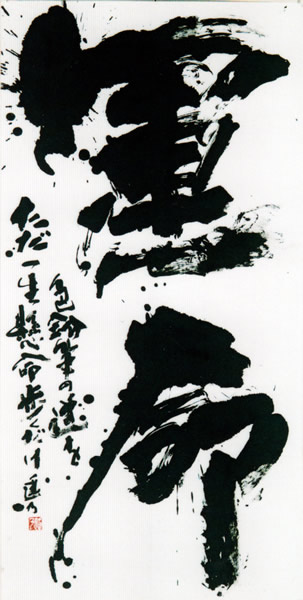 運命
色鉛筆の道を
ただ一生懸命歩くだけ